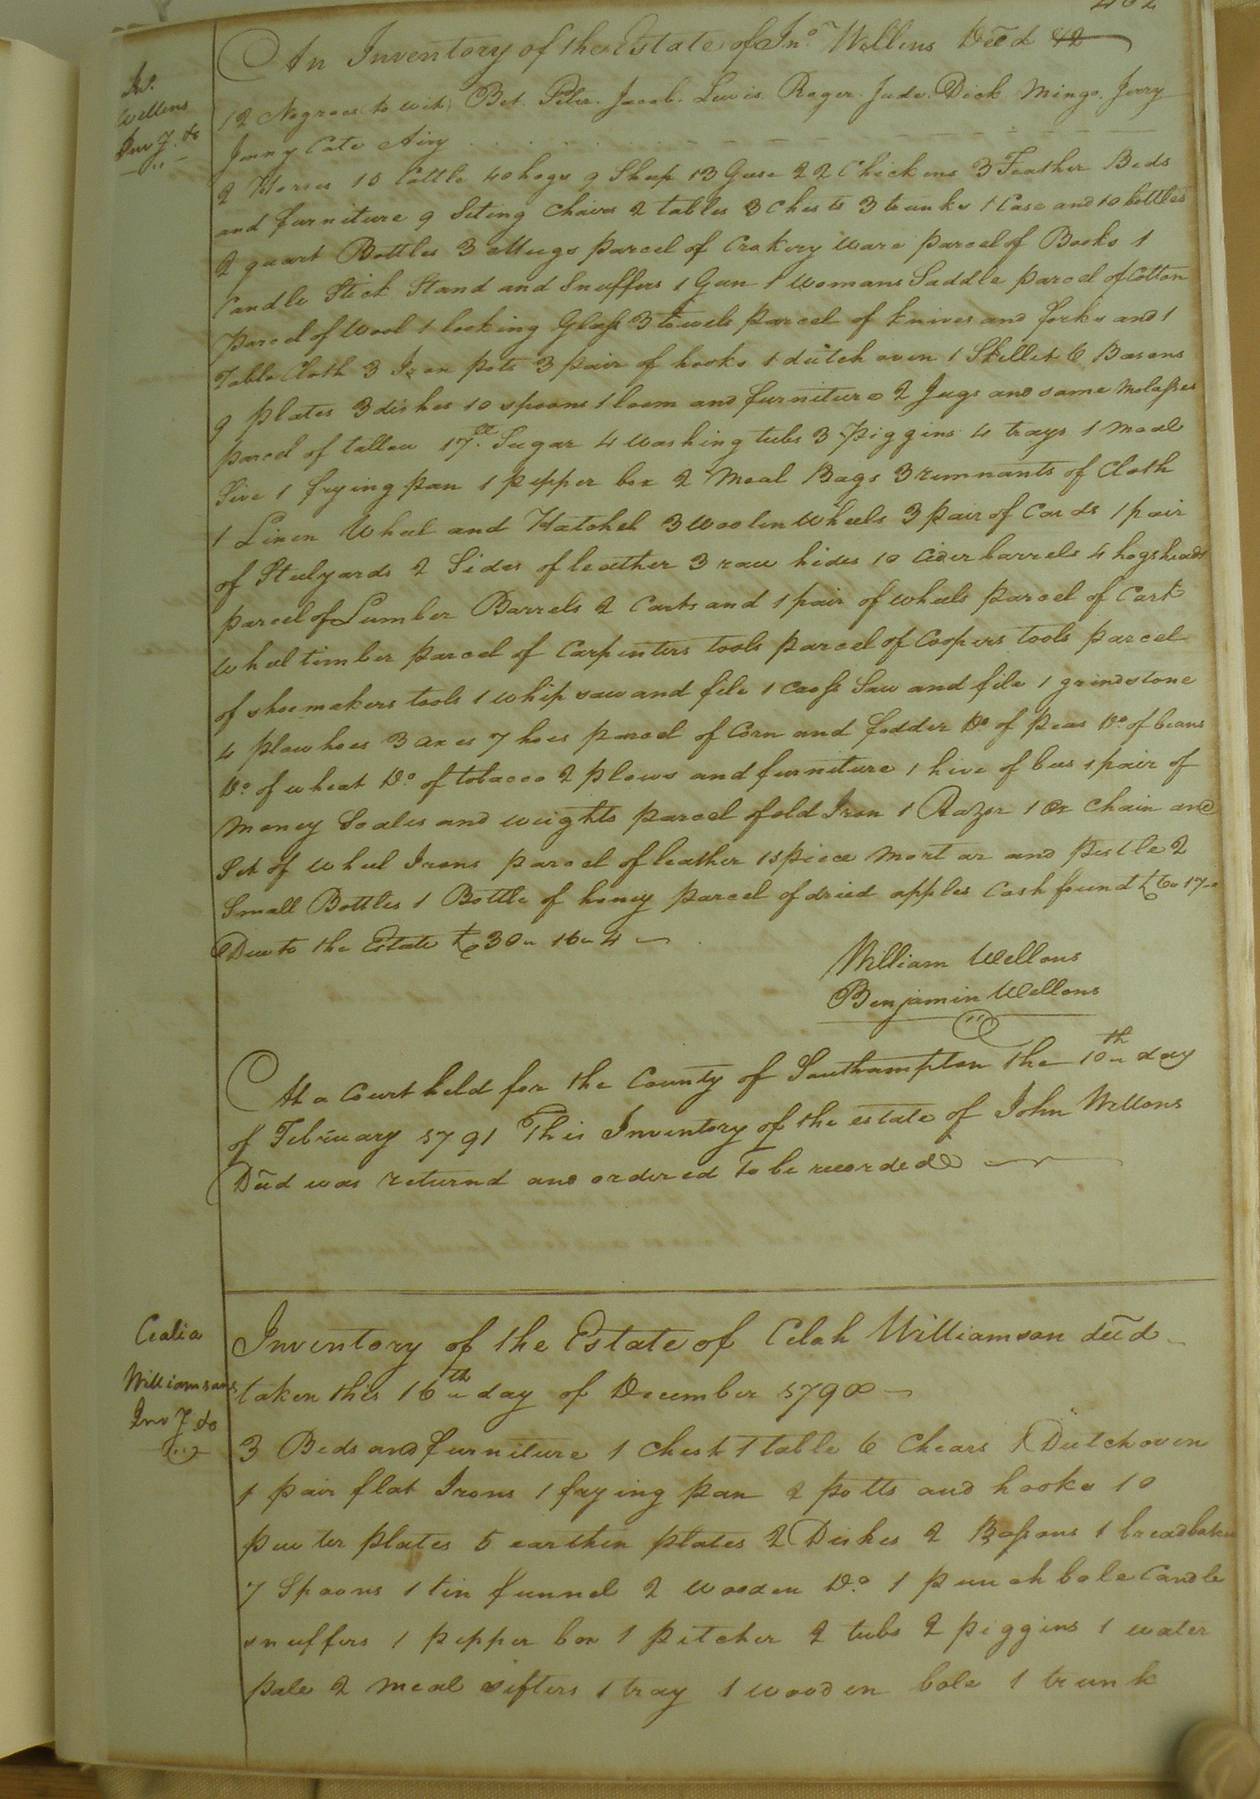 An Inventory of the Estate of Jno. Wellons Decd &c
Jno.
Wellons
Invy. &c
12 Negroes to wit, Bet. Peter. Jacob. Lewis. Roger. Jude. Dick Mingo. Jerry
Jenny Cate Airy
2 Horses 15 Cattle 40 hogs 9 Sheep 13 Geese 22 Chickens 3 Feather Beds
and furniture 9 Siting Chairs 2 tables 3 Chests 3 trunks 1 Case and 10 bottles
2 quart Bottles 3 Mugs parcel of Crokery ware parcel of Books 1
Candle Stick Stand and Snuffers 1 Gun 1 womans Saddle parcel of Cotton
Parcel of Wool 1 looking Glass 3 towels parcel of knives and forks and 1
Table Cloth 3 Iron pots 3 pair of hooks 1 dutch oven 1 Skillet 6 Basons
9 plates 3 dishes 10 spoons 1 loom and furniture 2 Jugs and some Molasses
parcel of tallow 17 ll. Sugar 4 washing tubs 3 Piggins 4 trays 1 meal
Sive 1 frying pan 1 pepper box 2 Meal Bags 3 remnants of Cloth
1 Linen Wheel and Hatchel 3 woolen wheels 3 pair of Cards 1 pair
of Stulyards 2 Sides of leather 3 raw hides 10 cider barrels 4 hogsheads
parcel of Lumber Barrels 2 Carts and 1 pair of wheels parcel of Cart
wheel timber parcel of Carpenters tools parcel of Coopers tools parcel
of shoemakers tools 1 whip saw and file 1 Cross Saw and file 1 grindstone
4 plow hoes 3 axes 7 hoes parcel of Corn and fodder Do. of peas Do. of beans
Do. of wheat Do. of tobacco 2 plows and furniture 1 hive of bees 1 pair of
money Scales and weights parcel of old Iron 1 Razor 1 ox Chain and
Set of wheel Irons parcel of leather 1 Spice Mortar and Pestle 2
Small Bottles 1 Bottle of honey parcel of dried apples Cash found £6 " 17 "
Due to the Estate £30 " 16 " 4
William Wellons
Benjamin Wellons
At a Court held for the County of Southampton the 10th day
of February 1791 This Inventory of the estate of John Wellons
Decd was returnd and ordered to be recorded
Cealia
Williamsons
Invy. &c
Inventory of the Estate of Celah Williamson decd
taken this 16th day of December 1790
3 Beds and furniture 1 Chest 1 table 6 Chears 1 Dutch oven
1 pair flat Irons 1 frying pan 2 potts and hooks 10
pewter plates 5 earthen plates 2 Dishes 2 Basons 1 bread basket
7 Spoons 1 tin funnel 2 wooden Do. 1 punch bole Candle
snuffers 1 pepper box 1 pitcher 2 tubs 2 piggins 1 water
pale 2 meal sifters 1 tray 1 wooden bole 1 trunk